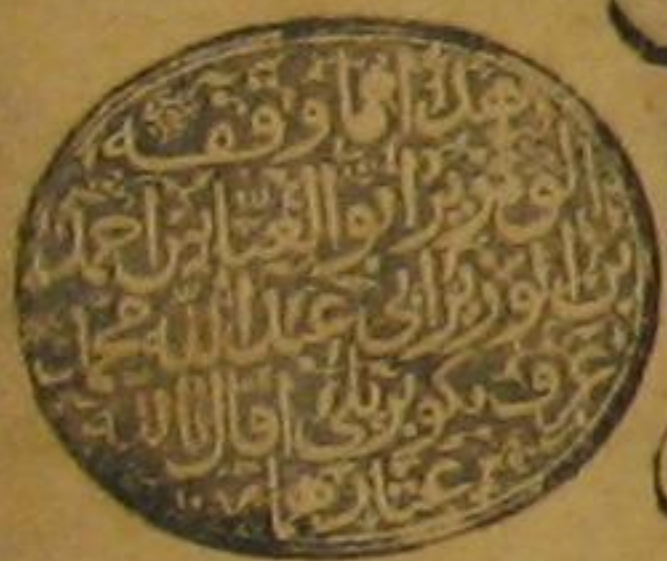 هذا مما وقفه
الوزير ابو العباس احمد
بن الوزير ابي عبد الله محمد
عرف بكوبريلى اقال الله
عثارهما ١٠٧٨